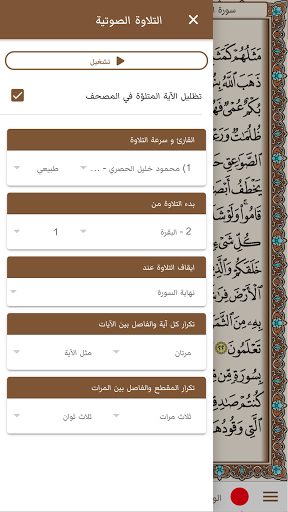 التلاوة الصوتية
تشغيل
تظليل الآية المتلوّة في المصحف
القارئ و سرعة التلاوة
1) محمود خليل الحصري - ... طبيعي
بدء التلاوة من
2 - البقرة 1
ايقاف التلاوة عند
نهاية السورة
تكرار كل آية والفاصل بين الآيات
مرتان مثل الآية
تكرار المقطع والفاصل بين المرات
ثلاث مرات ثلاث ثوان
سورة
مَثَلُهُمْ كَمَثَلِ
ذَهَبَ ٱللَّهُ
بُكْمٌ عُمْىٌ فَهُمْ
ظُلُمَٰتٌ وَرَعْدٌ
يَخْطَفُ أَبْصَٰرَ
قَامُوا۟ وَلَوْ شَآءَ
كُلِّ شَىْءٍ
خَلَقَكُمْ وَٱلَّذِينَ
ٱلْأَرْضَ فِرَٰشًا
بِهِۦ مِنَ ٱلثَّمَرَٰتِ
تَعْلَمُونَ ٢٢
بِسُورَةٍ مِّن
كُنتُمْ صَٰدِقِينَ
ٱلَّتِى وَقُودُهَا